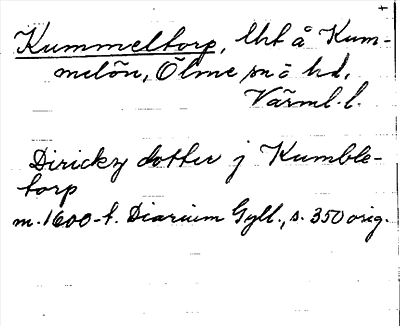 Kummeltorp, lht å Kum-
melön, Ölme sn o hd,
Värml. l.
Diricky dotter j Kumble-
torp
m. 1600-t. Diarium Gyll., s. 350 orig.